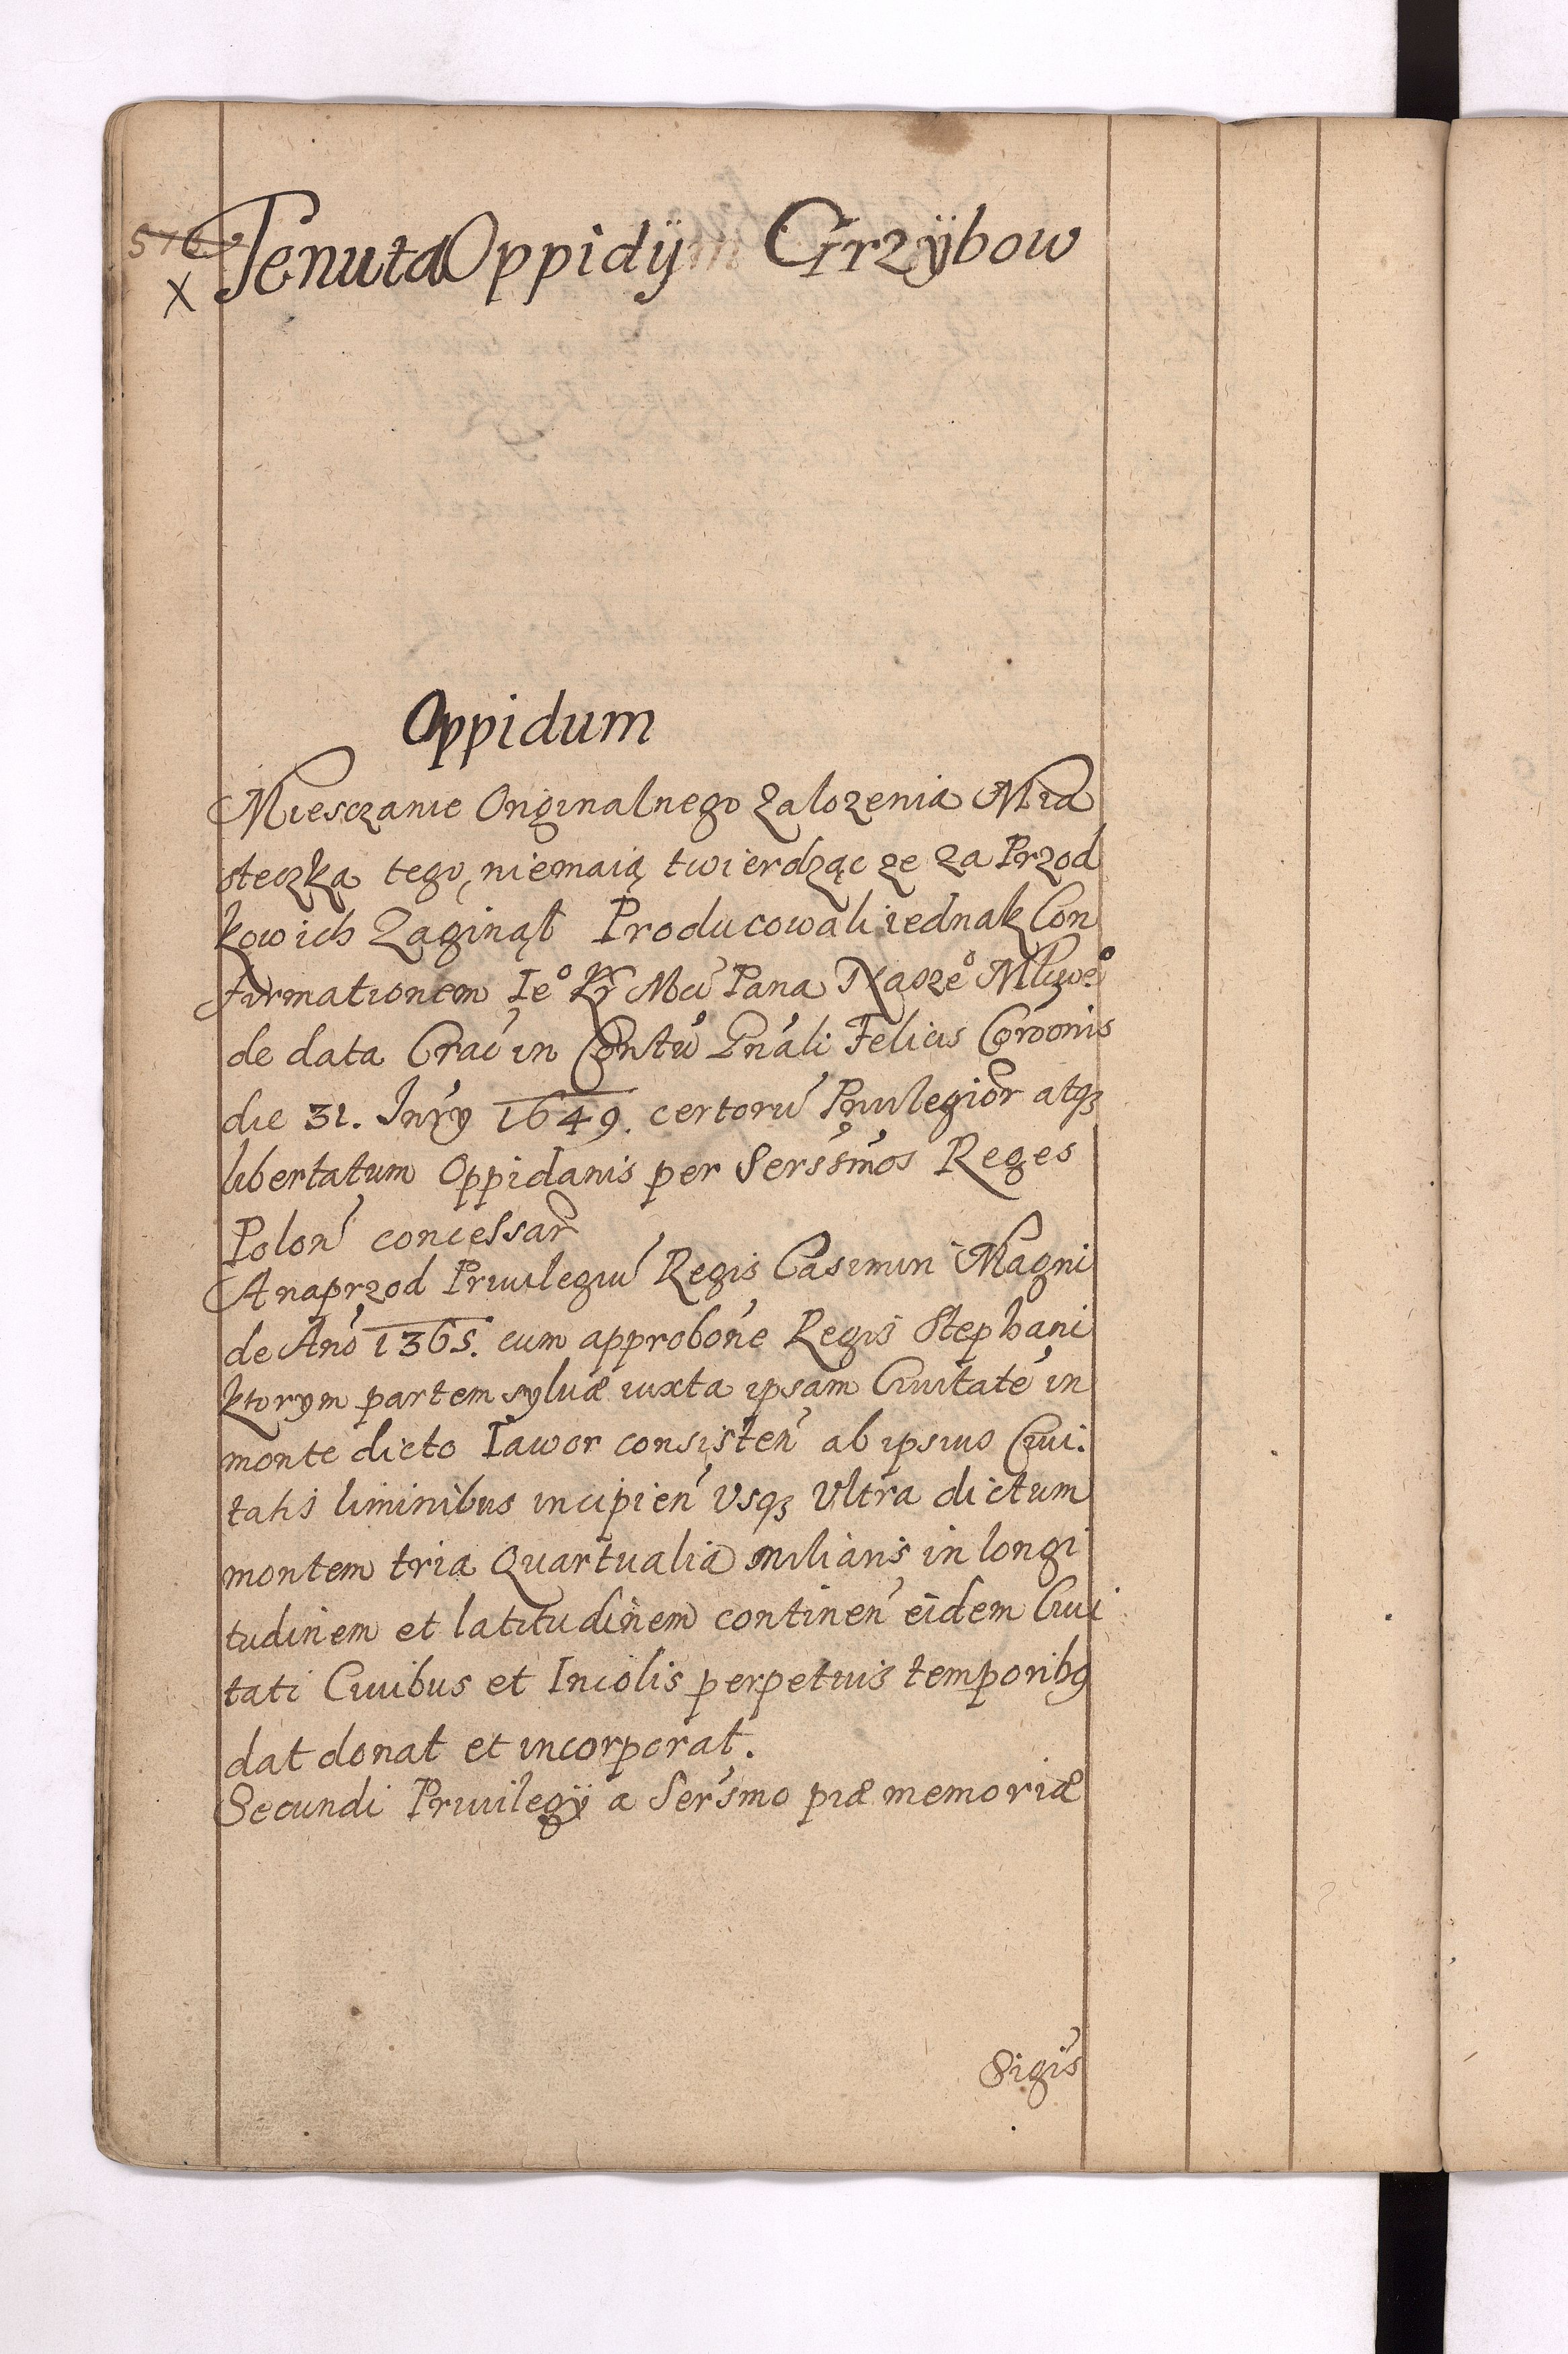 Tenuta Oppidÿ Grzÿbow
X
Oppidum
Miesczanie Originalnego zalozenia Mia
steczka tego, niemaią twierdząc ze za Przod
kow ich Zaginął Producowali iednak Con
firmationem Ie° Kr Mci Pana Nasze° Mliwe°
de data Crac in Contu Gnali Felicis Coroonis
die 31. Inry 1649. certoru Priuilegior atqȝ
libertatum Oppidanis per Serssmos Reges
Polon concessar
A naprzod Priuilegiu Regis Casimiri Magni
de Ano 1365. cum approbone Regis Stephani
ktorym partem syluæ iuxta ipsam Ciuitate in
monte dicto Iawor consisten ab ipsius Ciui.
tatis liminibus incipien Vsqȝ Vltra dictum
montem tria Quartualia miliaris in longi
tudinem et latitudinem continen eidem Ciui
tati Ciuibus et Incolis perpetuis temporibq
dat donat et incorporat.
Secundi Priuilegÿ a Sersmo piæ memoriæ
Sigis